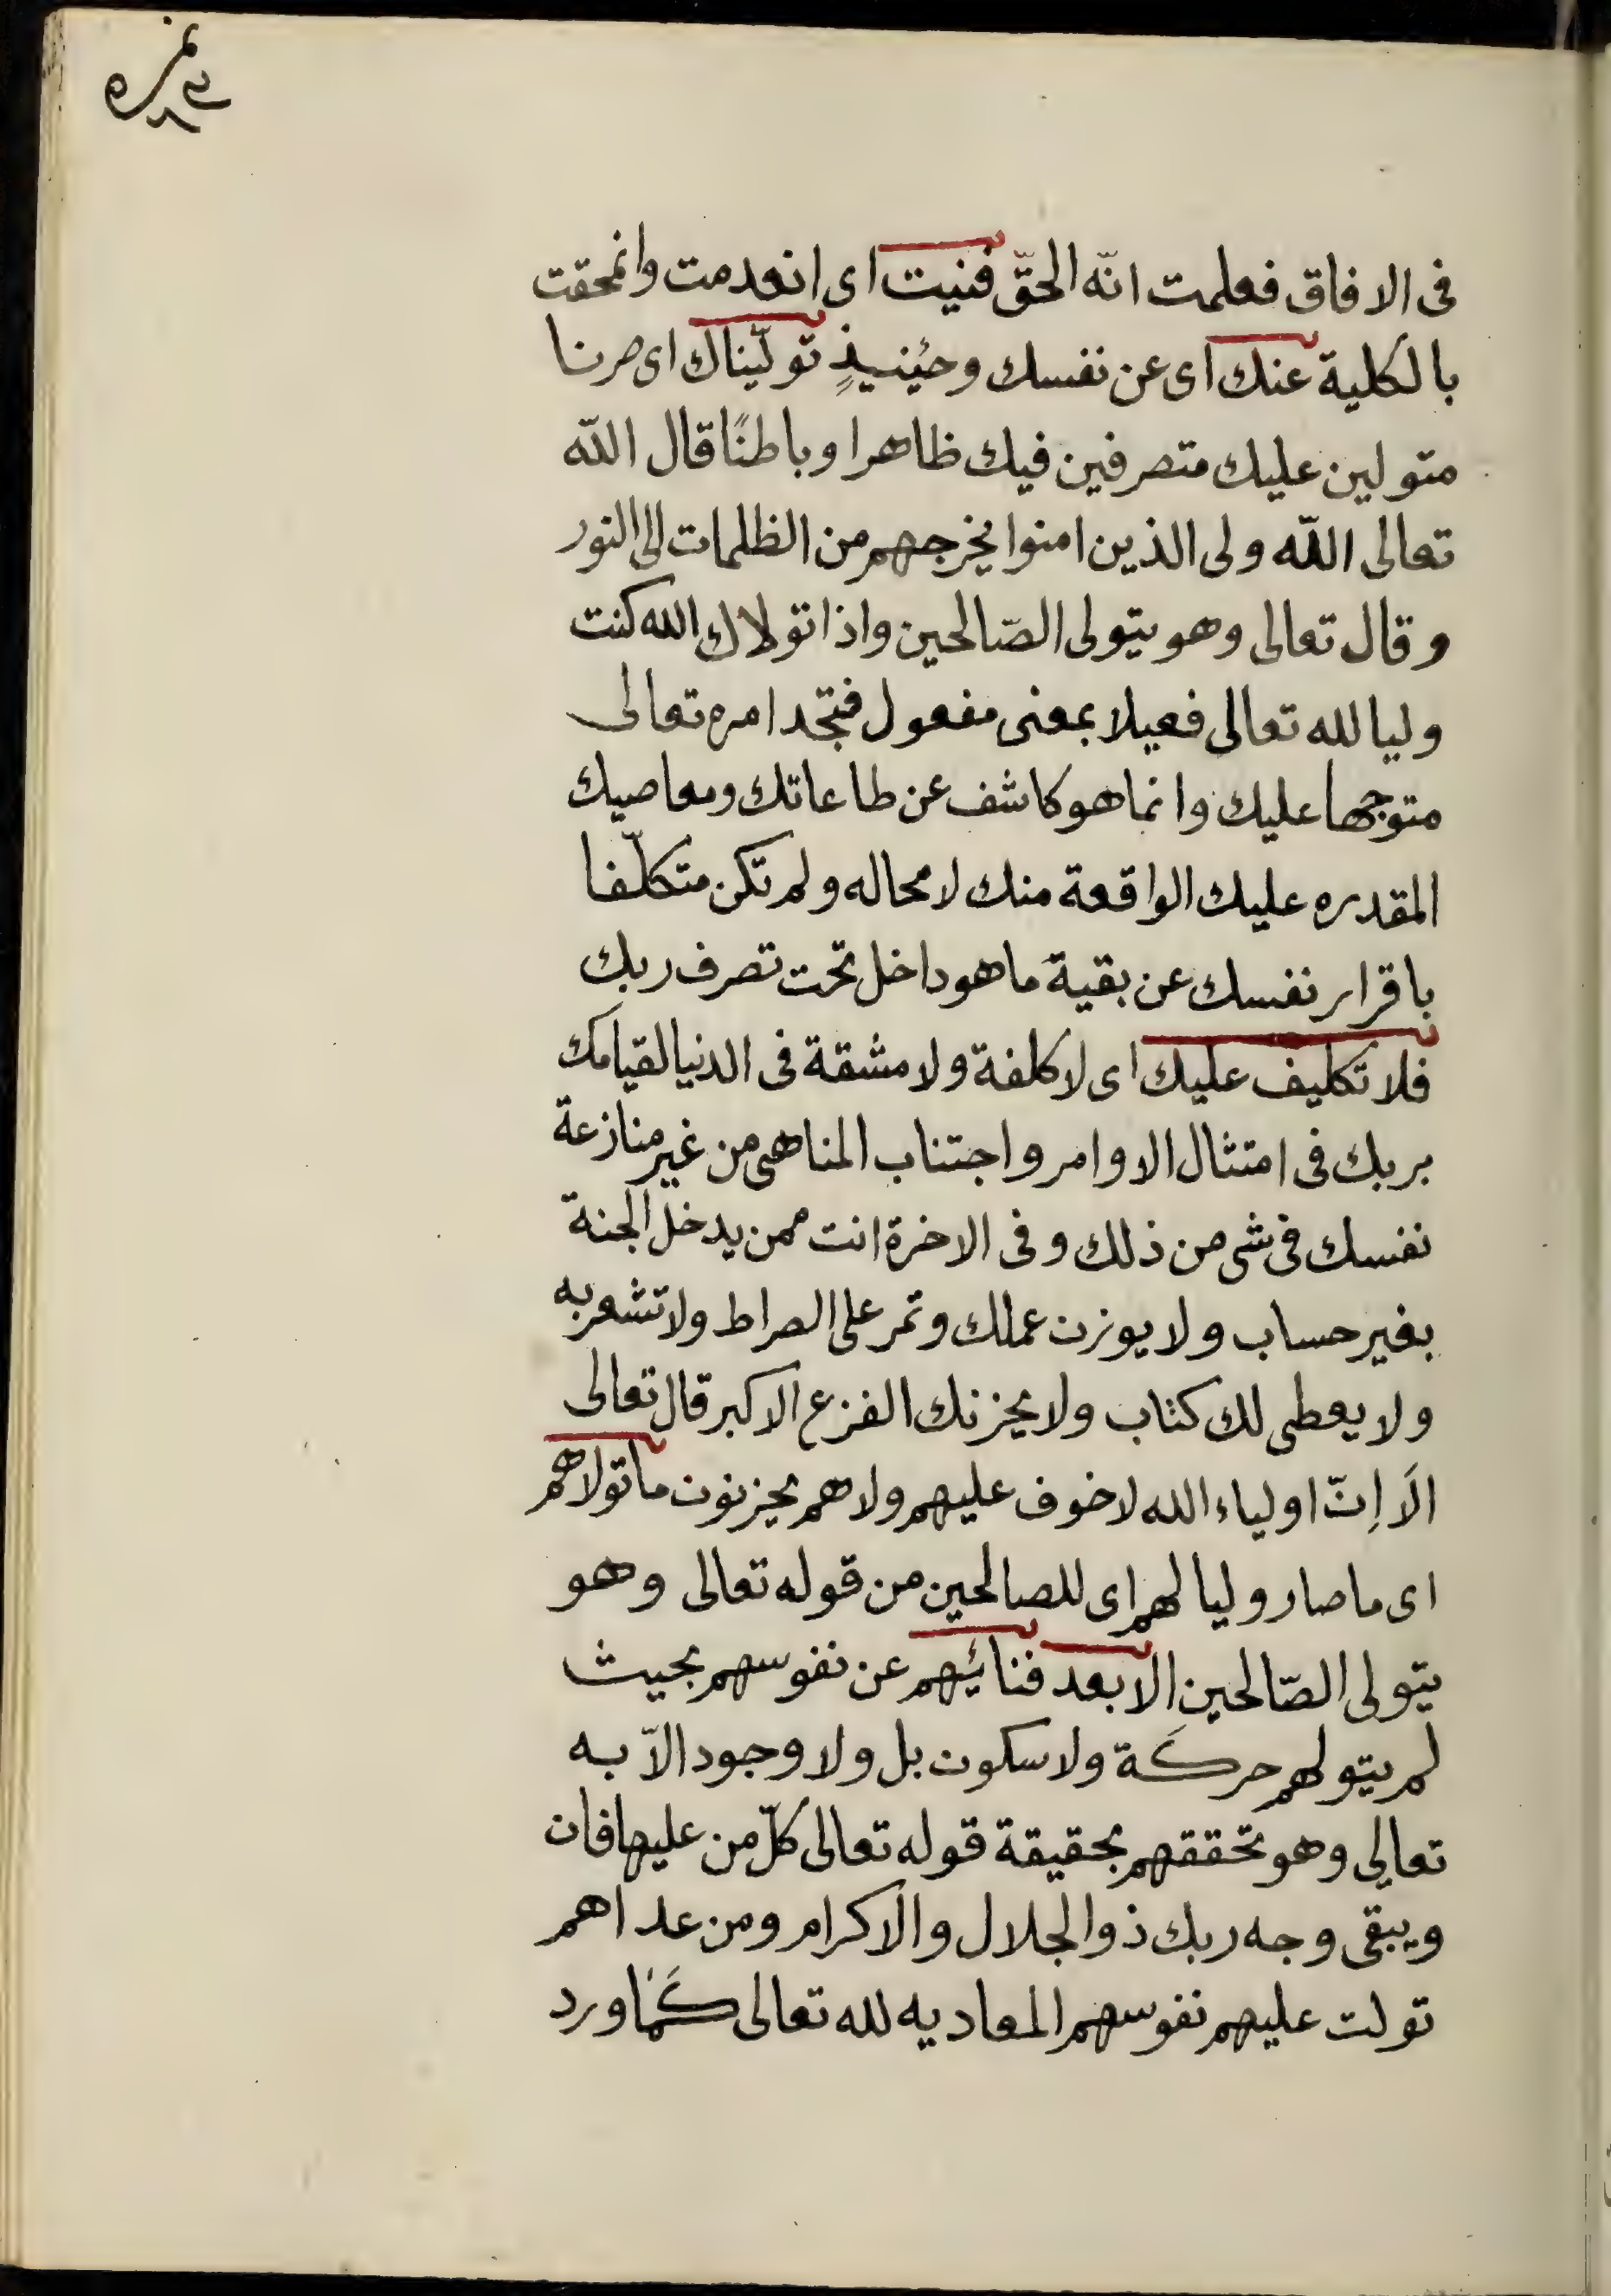 فى الافاق فعلمت انّه الحقّ فنيت اى انعدمت وانمحقت
بالكلية عنك اى عن نفسك وحينيذٍ تولّيناك اى صرنا
متولين عليك متصرفين فيك ظاهرا وباطنًا قال اللّه
تعالى اللّه ولى الذين امنوا يخرجهم من الظلمات الى النور
وقال تعالى وهو يتولى الصّالحين واذا تولاك الله كنت
وليا لله تعالى فعيلا بمعنى مفعول فتجد امره تعالى
متوجها عليك وانما هو كاشف عن طاعاتك ومعاصيك
المقدره عليك الواقعة منك لا محاله ولم تكن متكلّفا
باقرار نفسك عن بقية ما هو داخل تحت تصرف ربك
فلا تكليف عليك اى لا كلفة ولا مشقة فى الدنيا لقيامك
بربك فى امتثال الاوامر واجتناب المناهى من غير منازعة
نفسك فى شى من ذلك وفى الاخرة انت ممن يدخل الجنة
بغير حساب ولا يوزن عملك وتمر على الصراط ولا تشعر به
ولا يعطى لك كتاب ولا يحزنك الفزع الاكبر قال تعالى
الَا اِنّ اولياء الله لا خوف عليهم ولا هم يحزنون ما تولاهم
اى ما صار وليا لهم اى للصالحين من قوله تعالى وهو
يتولى الصّالحين الا بعد فنائهم عن نفوسهم بحيث
لم يتولهم حركة ولا سكون بل ولا وجود الاّ به
تعالى وهو تحققهم بحقيقة قوله تعالى كلّ من عليها فان
ويبقى وجه ربك ذو الجلال والاكرام ومن عداهم
تولت عليهم نفوسهم المعاديه لله تعالى كما ورد